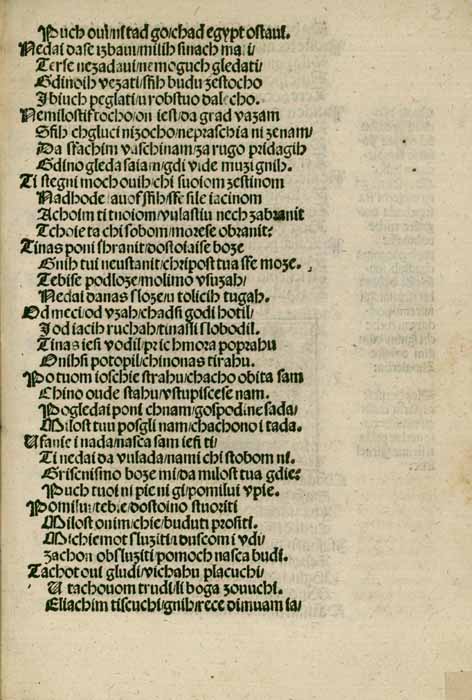 Puch ovi/ni tad go/chad egypt ostavi.
Nedai dase izbavi/milih sinach mati/
Terse nezadavi/nemoguch gledati/
Gdinoih vezati/sfih budu zestocho
I biuch peglati/u robstuo dalecho.
Nemilostif tocho/on iest/da grad vazam
Sfih chgluci nizocho/ne praschia ni zenam/
Da sfachim vaschinam/za rugo pridagih
Gdino gleda saiam/gdi vide muzi gnih.
Ti stegni moch ouih/chi suoiom zestinom
Nadhode sfih/sfe sile iacinom
Achoim ti tuoiom/vlastiu nech zabranit
Tchoie ta chi sobom/morese obranit?
Tinas poni shranit/dostoiaise boze
Gnih tui neustanit/chripost tua sfe moze.
Tebise podloze/molimo vsuzah/
Nedai danas sloze/u tolicih tugah.
Od meci/od vzah/chadsi godi hotil/
I od iacih ruchah/tinassi slobodil.
Tinas iesi vodil/pric hmora poprahu
Onihsi potopil/chinonas tirahu.
Po tuom ioschie strahu/chacho obita sam
Chino oude stahu/vstupiscese nam.
Pogledai poni chnam/gospodine sada/
Milost tuu posgli nam/chachono i tada.
Ufanie i nada/nasca sam iesi ti/
Ti nedai da vulada/nami chi stobom ni.
Grisenismo boze mi/da milost tua gdie?
Puch tuoi ni pieni gi/pomilui vpie.
Pomilui/tebie/dostoino stuoriti
Milost onim/chie/buduti prositi.
Mi chiemot sluziti/u duscom i vdi/
zachon obsluziti/pomoch nasca budi.
Tachot oui gludi/vichahu placuchi/
U tachouom trudi/li boga zovuchi.
Eliachim tiscuchi/gnih/rece dimuam sa/